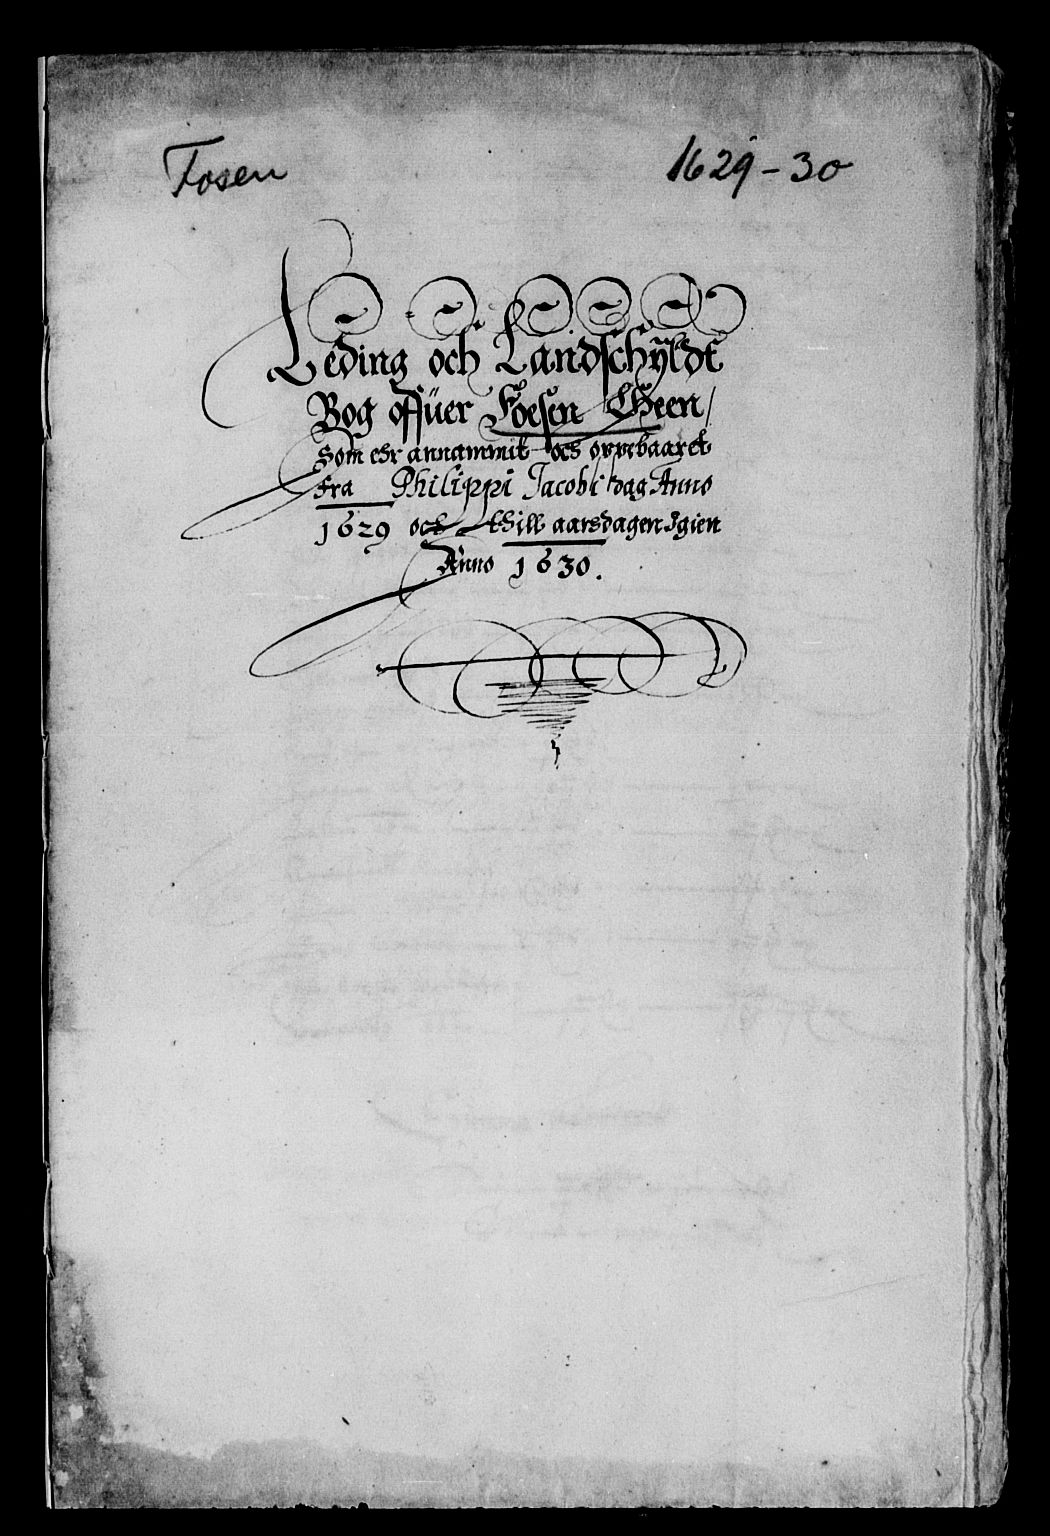 Fosen 1629-30
Leding och Landschÿldt
Bog offüer Foesen Lheen/
Som ehr annammit och oppebaaret
fra Philippi Jacobi dag Anno
1629 och thill aarsdagen Igien
Anno 1630.